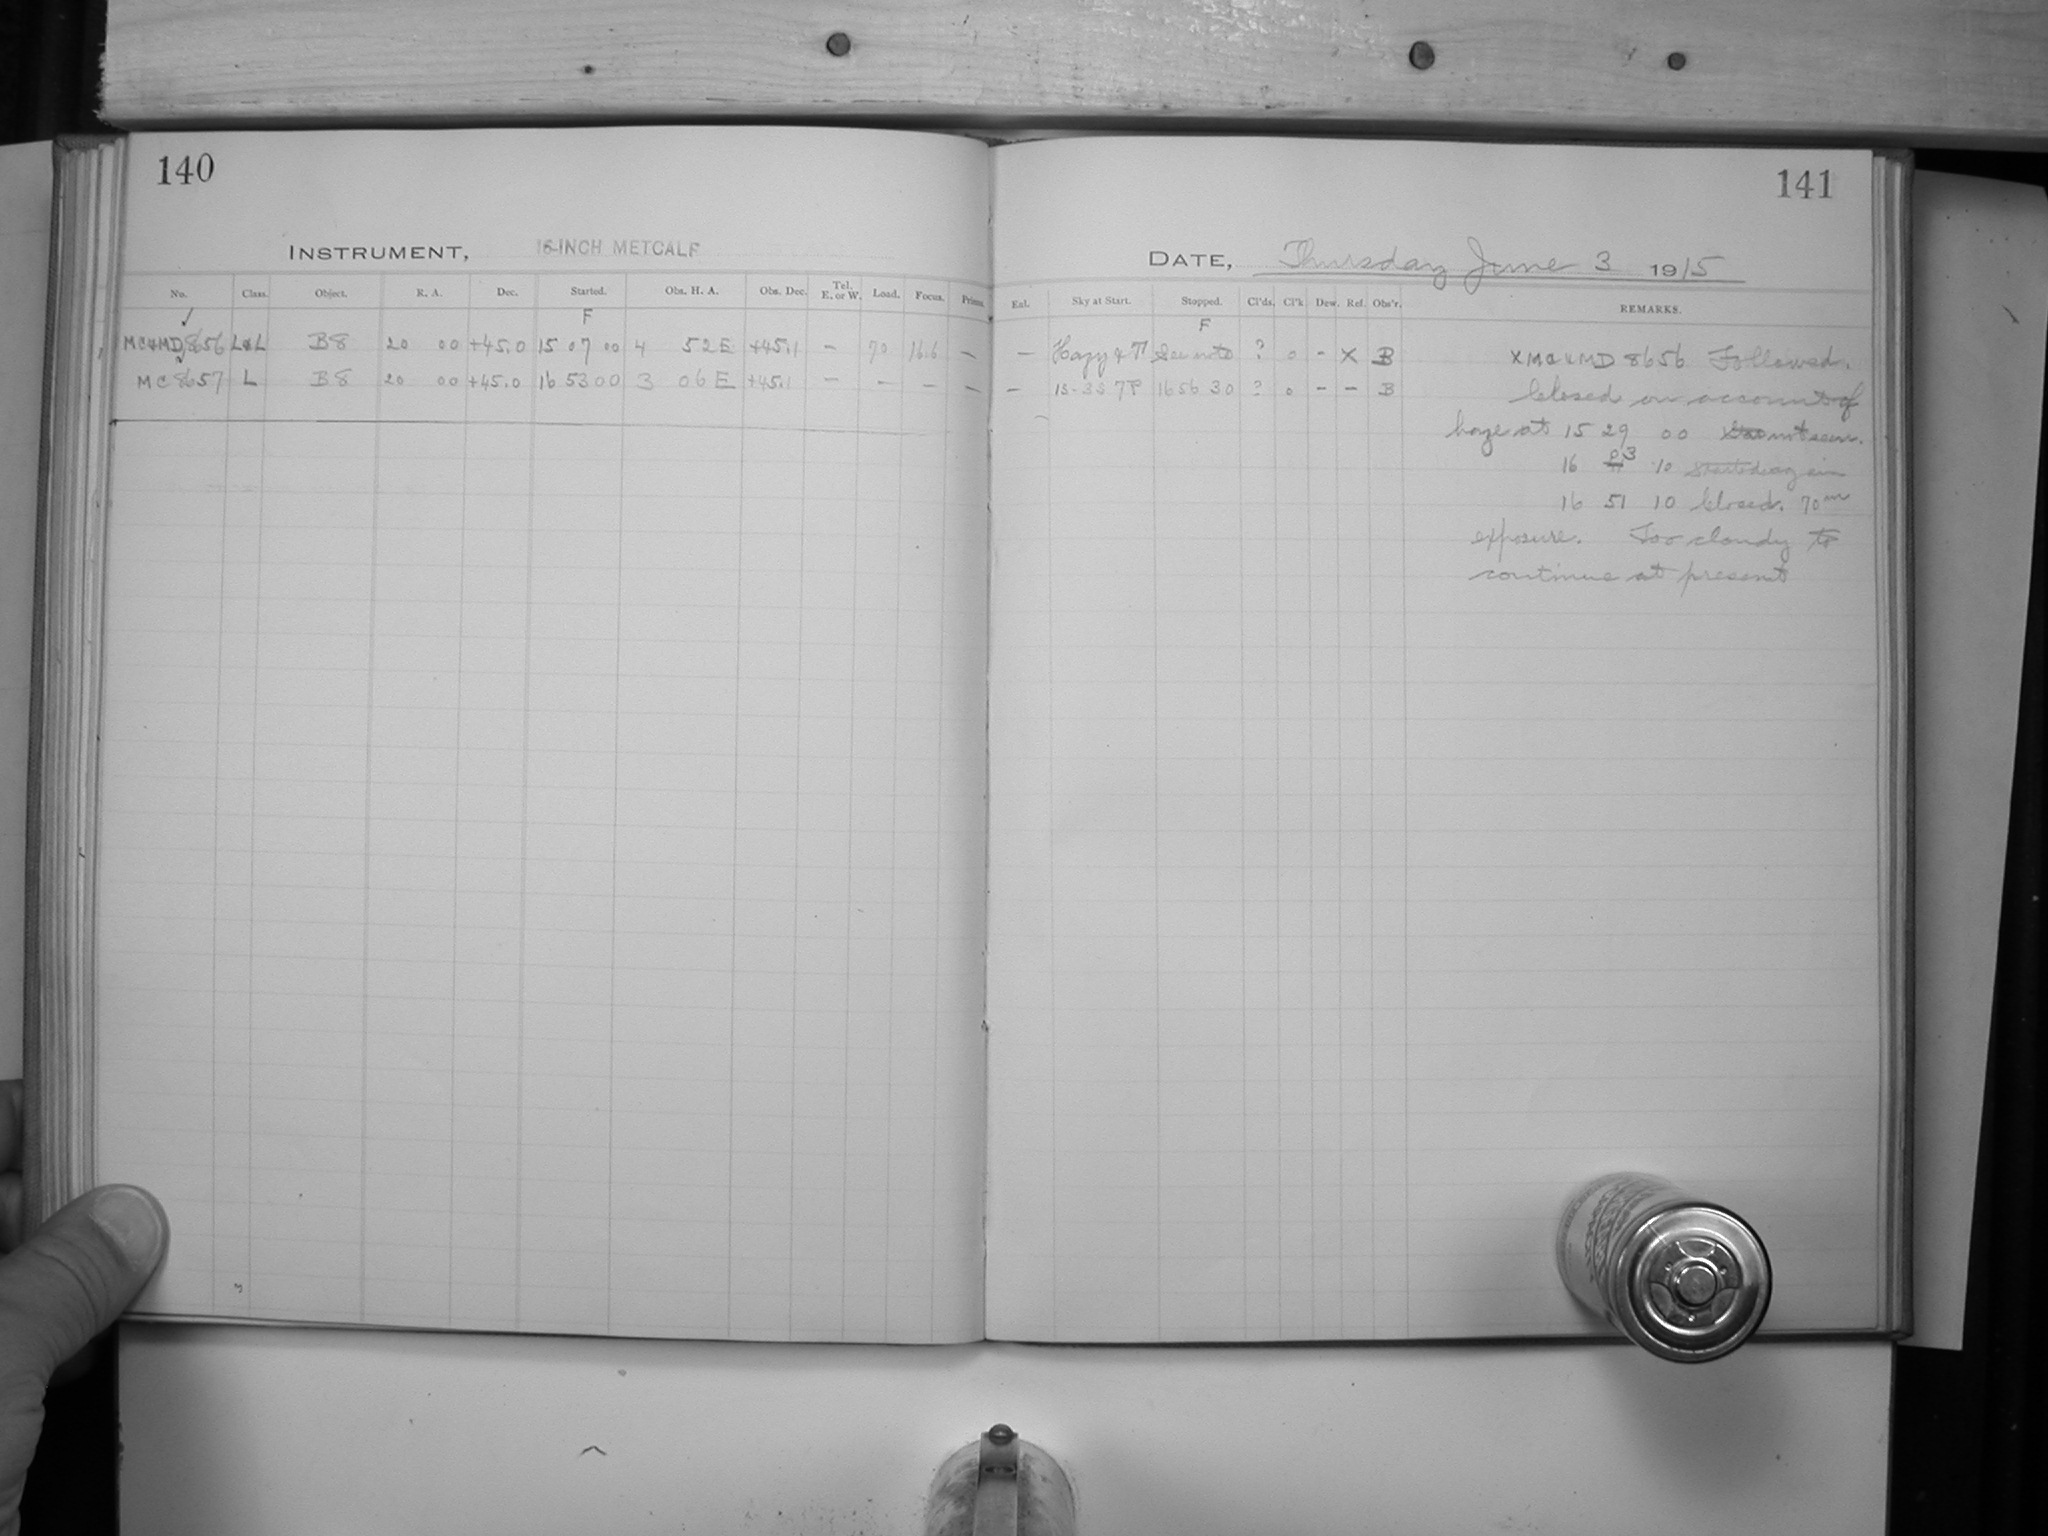 140
INSTRUMENT, 16-INCH METCALF
No. Class. Object. R. A. Dec. Started. Obs. H. A. Obs. Dec. Tel. E. or W. Load. Focus. Prisms.
F
MC&MD 8656 L&L B8 20 00 +45.0 15 07 00 4 52 E +45.1 – 70 16.6 –
MC 8657 L B8 20 00 +45.0 16 53 00 3 06 E +45.1 – – – –
141
DATE, Thursday June 3 1915
Enl. Sky at Start. Stopped. Cl'ds. Cl'k Dew. Ref. Obs'r. REMARKS.
F
– Hazy & See note ? 0 - X B X MC & MD 8656 Followed.
– 16 56 30 ? 0 – – B Closed on account of
haze at 15 29 00 not seen.
16 3 10 Started again
16 51 10 Closed. 70m
exposure. Too cloudy to
continue at present